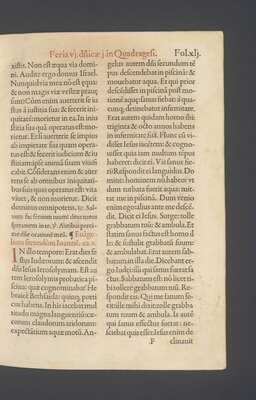 Feria vj. dñicæ j. in Quadrages. Fol. xlj.
xistis. Non est æqua via domi
ni. Audite ergo domus Israel.
Nunquid via mea nõ est equa:
& non magis viæ vestræ prauę
sunt: Cũm enim auerterit se iu
stus à iustitia sua: & fecerit ini
quitatẽ: morietur in ea. In iniu
stitia sua quã operatus est: mo
rietur. Et si auerterit se impius
ab impietate sua quam opera
tus est: & fecerit iudiciũ & iusti
tiam: ipse animã suam viuifi
cabit. Considerans enim & auer
tens se ab omnibus iniquitati
bus suis quas operatus est: vita
viuet, & non morietur. Dicit
dominus omnipotens.
In illo tempore: Erat dies fe
stus Iudæorum: & ascendit
Iesus Ierosolymam. Est au
tem Ierosolymis probatica pi
scina: quæ cognominatur He
braicè Bethsaida: quinq; porti
cus habens. In his iacebat mul
titudo magna languentiũ: cæ
corum claudorum aridorum:
expectantium aquæ motũ. An-
gelus autem dñi secundum tẽ
pus descendebat in piscinã: &
mouebatur aqua. Et qui prior
descẽdisset in piscinã post mo
tionẽ aquę: sanus fiebat: à qua-
cunq; detinebatur infirmitate.
Erat autem quidã homo ibi:
triginta & octo annos habens
in infirmitate sua. Hunc cũ vi-
disset Iesus iacẽtem: & cogno-
uisset quia iam multum tẽpus
haberet: dicit ei. Vis sanus fie-
ri? Respondit ei languidus. Do
mine: hominem nõ habeo: vt
dum turbata fuerit aqua: mit-
tat me in piscinã. Dum venio
enim ego: alius ante me descẽ-
dit. Dicit ei Iesus. Surge: tolle
grabbatum tuũ: & ambula. Et
statim sanus factus est homo il
le: & sustulit grabbatũ suum:
& ambulabat. Erat autem sab-
batum in die illa. Dicebant er-
go Iudæi illi qui sanus fuerat fa
ctus. Sabbatum est: nõ licet ti-
bi tollere grabbatum tuũ. Re-
spondit eis. Qui me sanum fe-
cit: ille mihi dixit: tolle grabba
tum tuum & ambula. Is autẽ
qui sanus effectus fuerat: ne-
sciebat quis esset. Iesus enim de
F clinauit